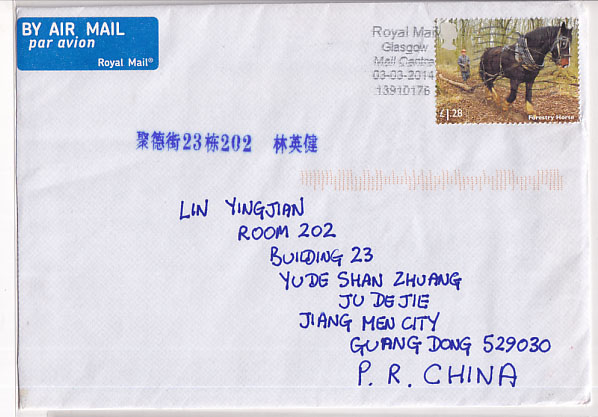 BY AIR MAIL
par avion
Royal Mail®
Royal Mail
Glasgow
Mail Centre
03-03-2014
13910176
£1.28
Forestry Horse
聚德街23栋202 林英健
LIN YINGJIAN
ROOM 202
BUILDING 23
YUDE SHAN ZHUANG
JU DE JIE
JIANG MEN CITY
GUANG DONG 529030
P. R. CHINA